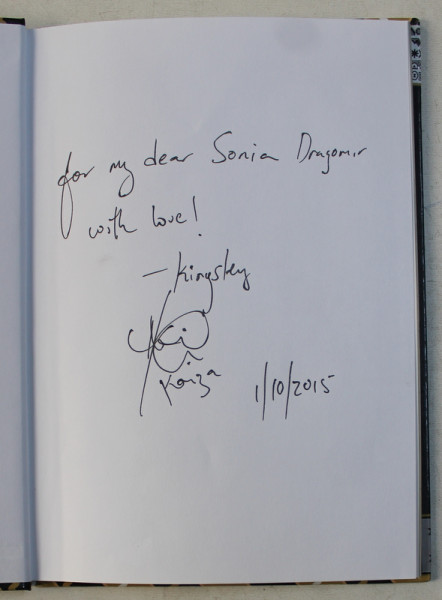 for my dear Sonia Dragomir
with love!
— Kingsley
1/10/2015